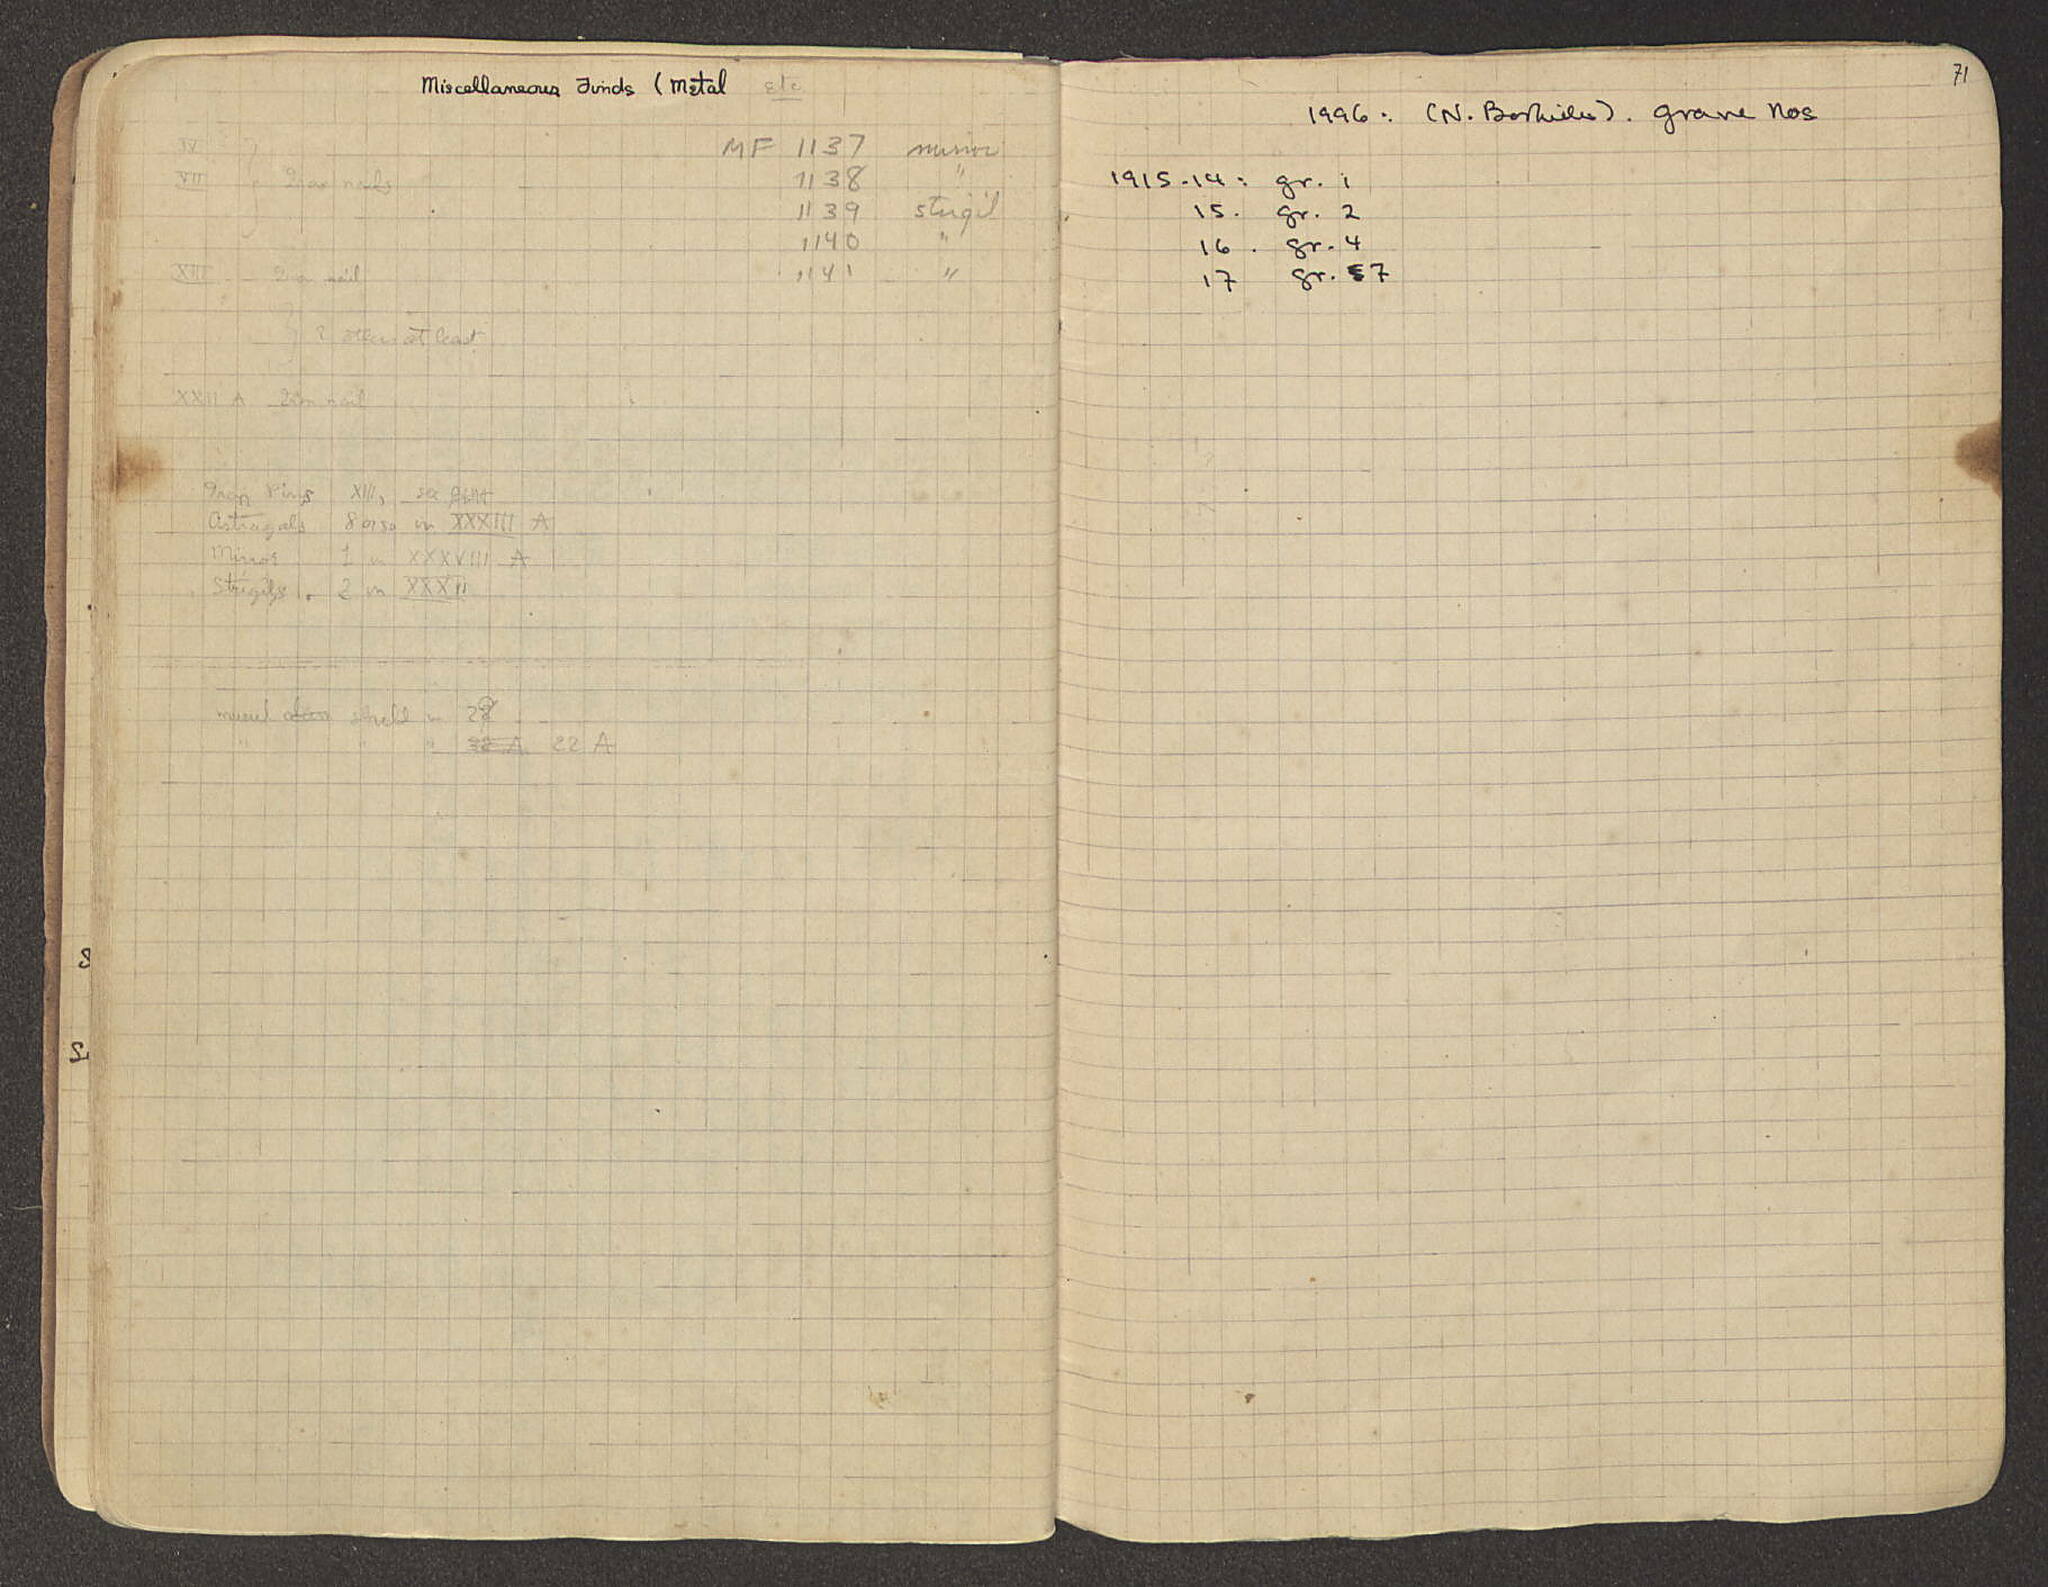 Miscellaneous Finds (Metal etc
IV
MF 1137 mirror
VII Iron nails
1138 "
1139 strigil
1140 "
XIII - Iron nail
1141 "
2 others at least
XXII A Iron nail
Iron Pins XIII, see
Astragals 8 or so in XXXIII A
Mirror 1 in XXXVIII A
Strigils . 2 in XXXII
shell in 28
" " " 22 A
71
1996: (N. ). grave nos
1915-14: gr. 1
15. gr. 2
16. gr. 4
17 gr. 7